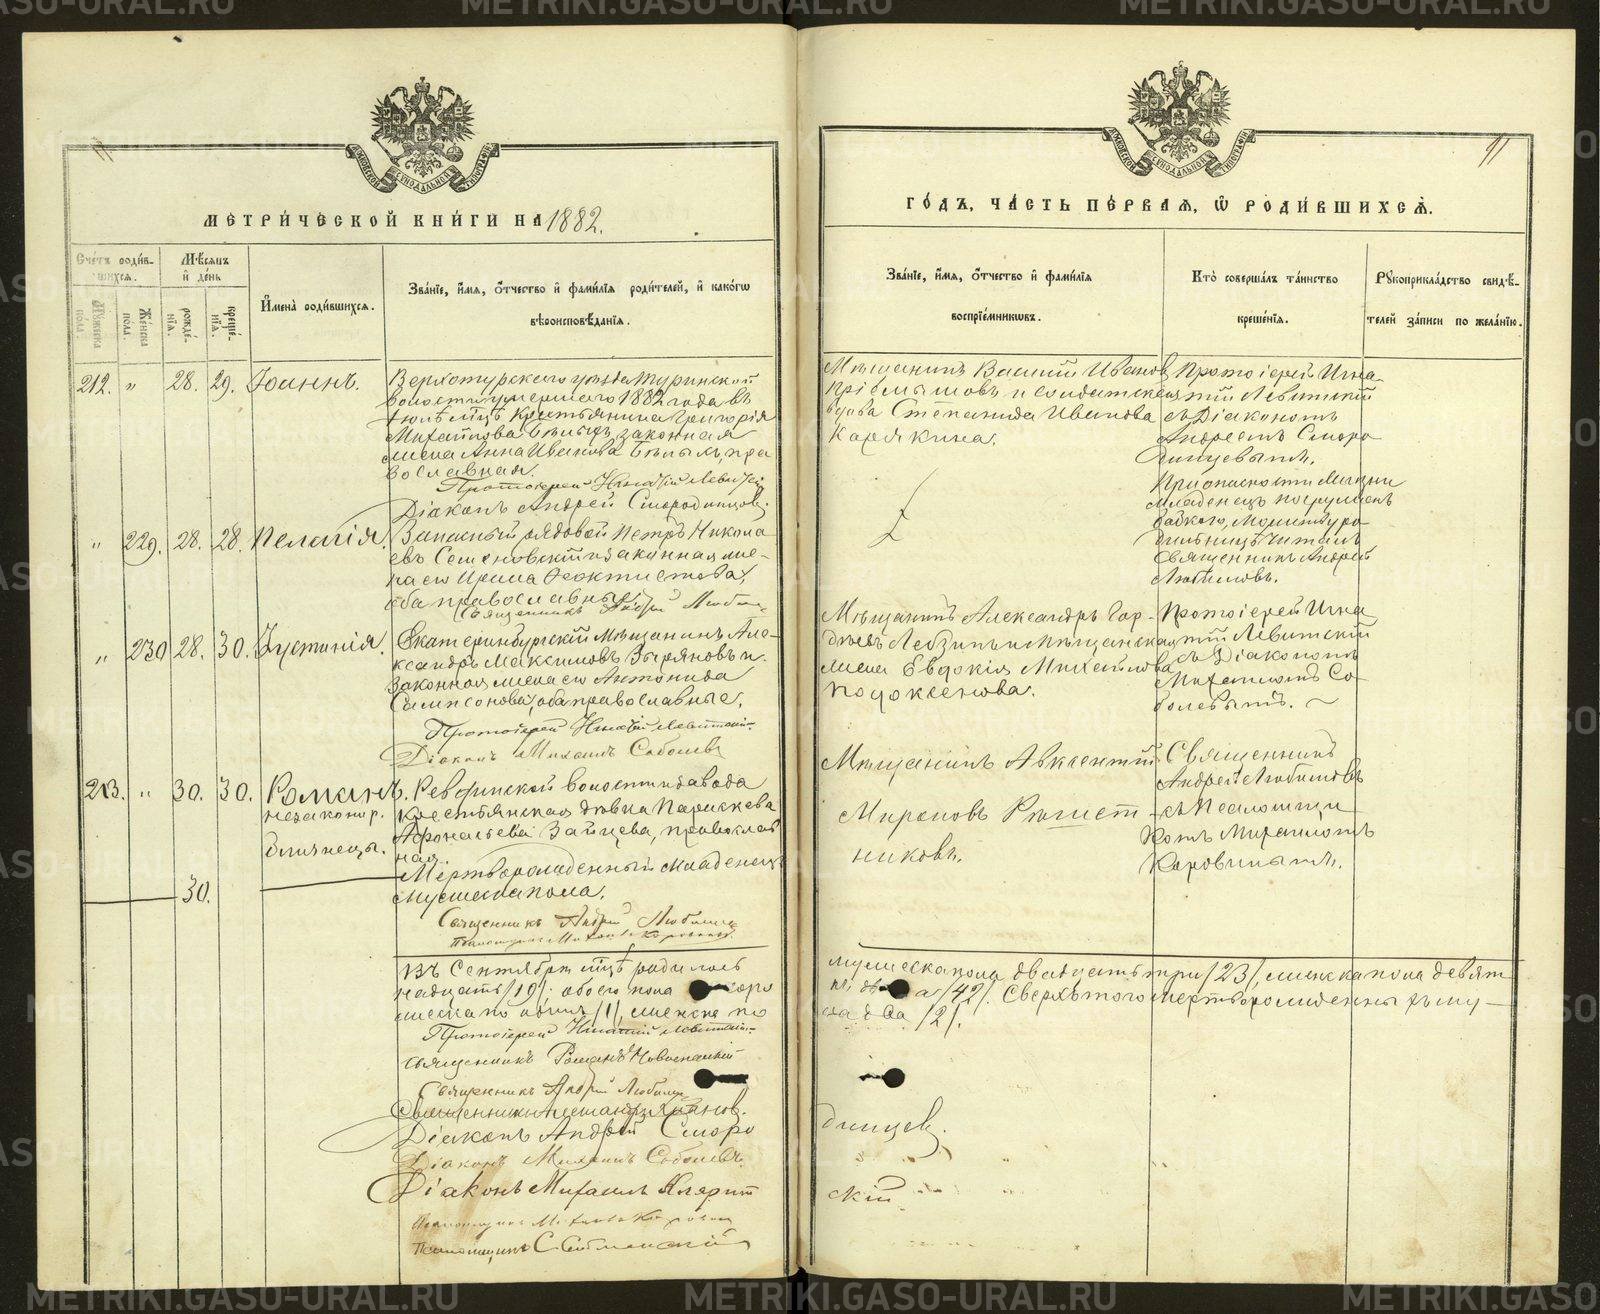 МЕТРИЧЕСКОЙ КНИГИ НА 1882.
Счетъ родив-
шихся.
Мѣсяцъ
и день
Мужеска
пола.
Женска
пола.
рожде-
нія.
креще-
нія.
Имена родившихся.
Званіе, имя, отчество и фамилія родителей, и какого
вѣроисповѣданія.
212. " 28. 29. Іоаннъ.
Верхотурскаго уѣзда Туринской
волости умершаго 1882 года въ
Іюлѣ мцѣ Крестьянина Григорія
Михайлова Бѣлыхъ, законная
жена Анна Иванова Бѣлыхъ, пра
вославная.
Протоіерей Игнатій Левитскій
Діаконъ Андрей Смородинцевъ.
" 229. 28. 28. Пелагія.
Запасный рядовой Петръ Никола
евъ Семеновскій и законная же-
на его Ирина Феоктистова,
оба православные.
Священникъ Андрей Любимовъ
" 230 28. 30. Іустинія.
Екатеринбургскій Мѣщанинъ Але-
ксандръ Максимовъ Зыряновъ и
законная жена его Антонида
Сампсонова, оба православные.
Протоіерей Игнатій Левитскій
Діаконъ Михаилъ Соболевъ
213. " 30. 30. Романъ.
незаконор.
близнецы.
Ревдинской волости и завода
крестьянская дѣвка Параскева
Афонасьева Зайцева, православ
ная.
30.
Мертворожденный младенецъ
мужеска пола.
Священникъ Андрей Любимовъ
Псаломщикъ Михаилъ Коровинъ
Въ Сентябрѣ мцѣ родилось
надцать /19/; обоего пола
жеска по одинъ /1/, женска по
Протоіерей Игнатій Левитскій
Священникъ Романъ
Священникъ Андрей Любимовъ
Священникъ Александръ
Діаконъ Андрей Сморо
Діаконъ Михаилъ Соболевъ
Діаконъ Михаилъ
Псаломщикъ Михаилъ Коровинъ
Псаломщикъ С.
ГОДЪ, ЧАСТЬ ПЕРВАЯ, Ѡ РОДИВШИХСЯ.
Званіе, имя, отчество и фамилія
воспріемниковъ.
Кто совершалъ таинство
крещенія.
Рукоприкладство свидѣ-
телей записи по желанію.
Мѣщанинъ Василій Ивановъ
Пріемышовъ и солдатская
вдова Степанида Иванова
Карякина.
Протоіерей Игна-
тій Левитскій
съ Діакономъ
Андреемъ Сморо
динцевымъ.
По опасности жизни
младенецъ погруженъ
бабкою, молитву ро
дильницѣ читалъ
Священникъ Андрей
Любимовъ.
Мѣщанинъ Александръ Гор-
дѣевъ Лебзинъ и мѣщанская
жена Евдокія Михайлова
Подоксенова.
Протоіерей Игна
тій Левитскій
съ Діакономъ
Михаиломъ Со
болевымъ.
Мѣщанинъ Авксентій
Мироновъ
никовъ.
Священникъ
Андрей Любимовъ
съ Псаломщи
комъ Михаиломъ
Коровинымъ.
мужеска пола двадцать три /23/, женска пола девят
/42/. Сверхъ того мертворожденныхъ му-
два /2/.
динцевъ.
скій
METRIKI.GASO-URAL.RU